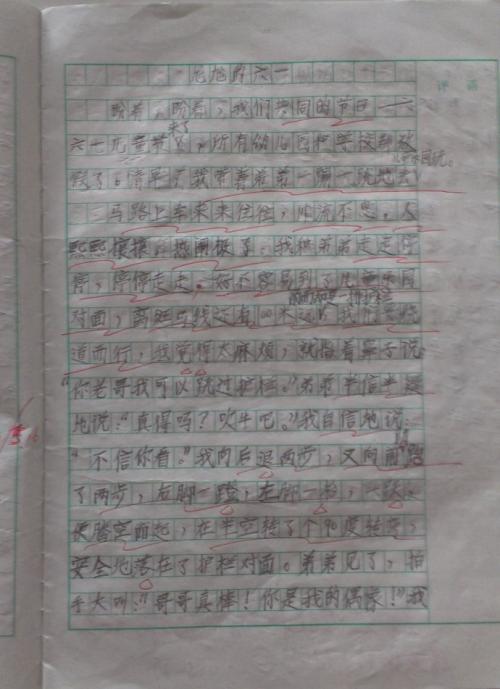 六一
盼着，盼着，我们共同的节日——六
来了
六一儿童节，所有的儿园和学校都放
假了。清早，我带着弟弟一蹦一跳地去
回玩。
马路上车来来往往，川流不息。人
熙熙攘攘，热闹极了。我和弟弟走走停
停，停停走走。好不容易到了儿童乐园
对面，离斑马线还有100米远，我们要绕
道而行，我觉得太麻烦，就指着鼻子说：
“你老哥我可以跳过护栏。”弟弟半信半疑
地说：“真得吗？吹牛吧。”我自信地说：
“不信你看。”我向后退两步，又向前跑
了两步，右脚一蹬，左脚一抬，一跃
便腾空而起，在半空转了个90度转弯，
安全地落在了护栏对面。弟弟见了，拍
手大叫：“哥哥真棒！你是我的偶像！”我